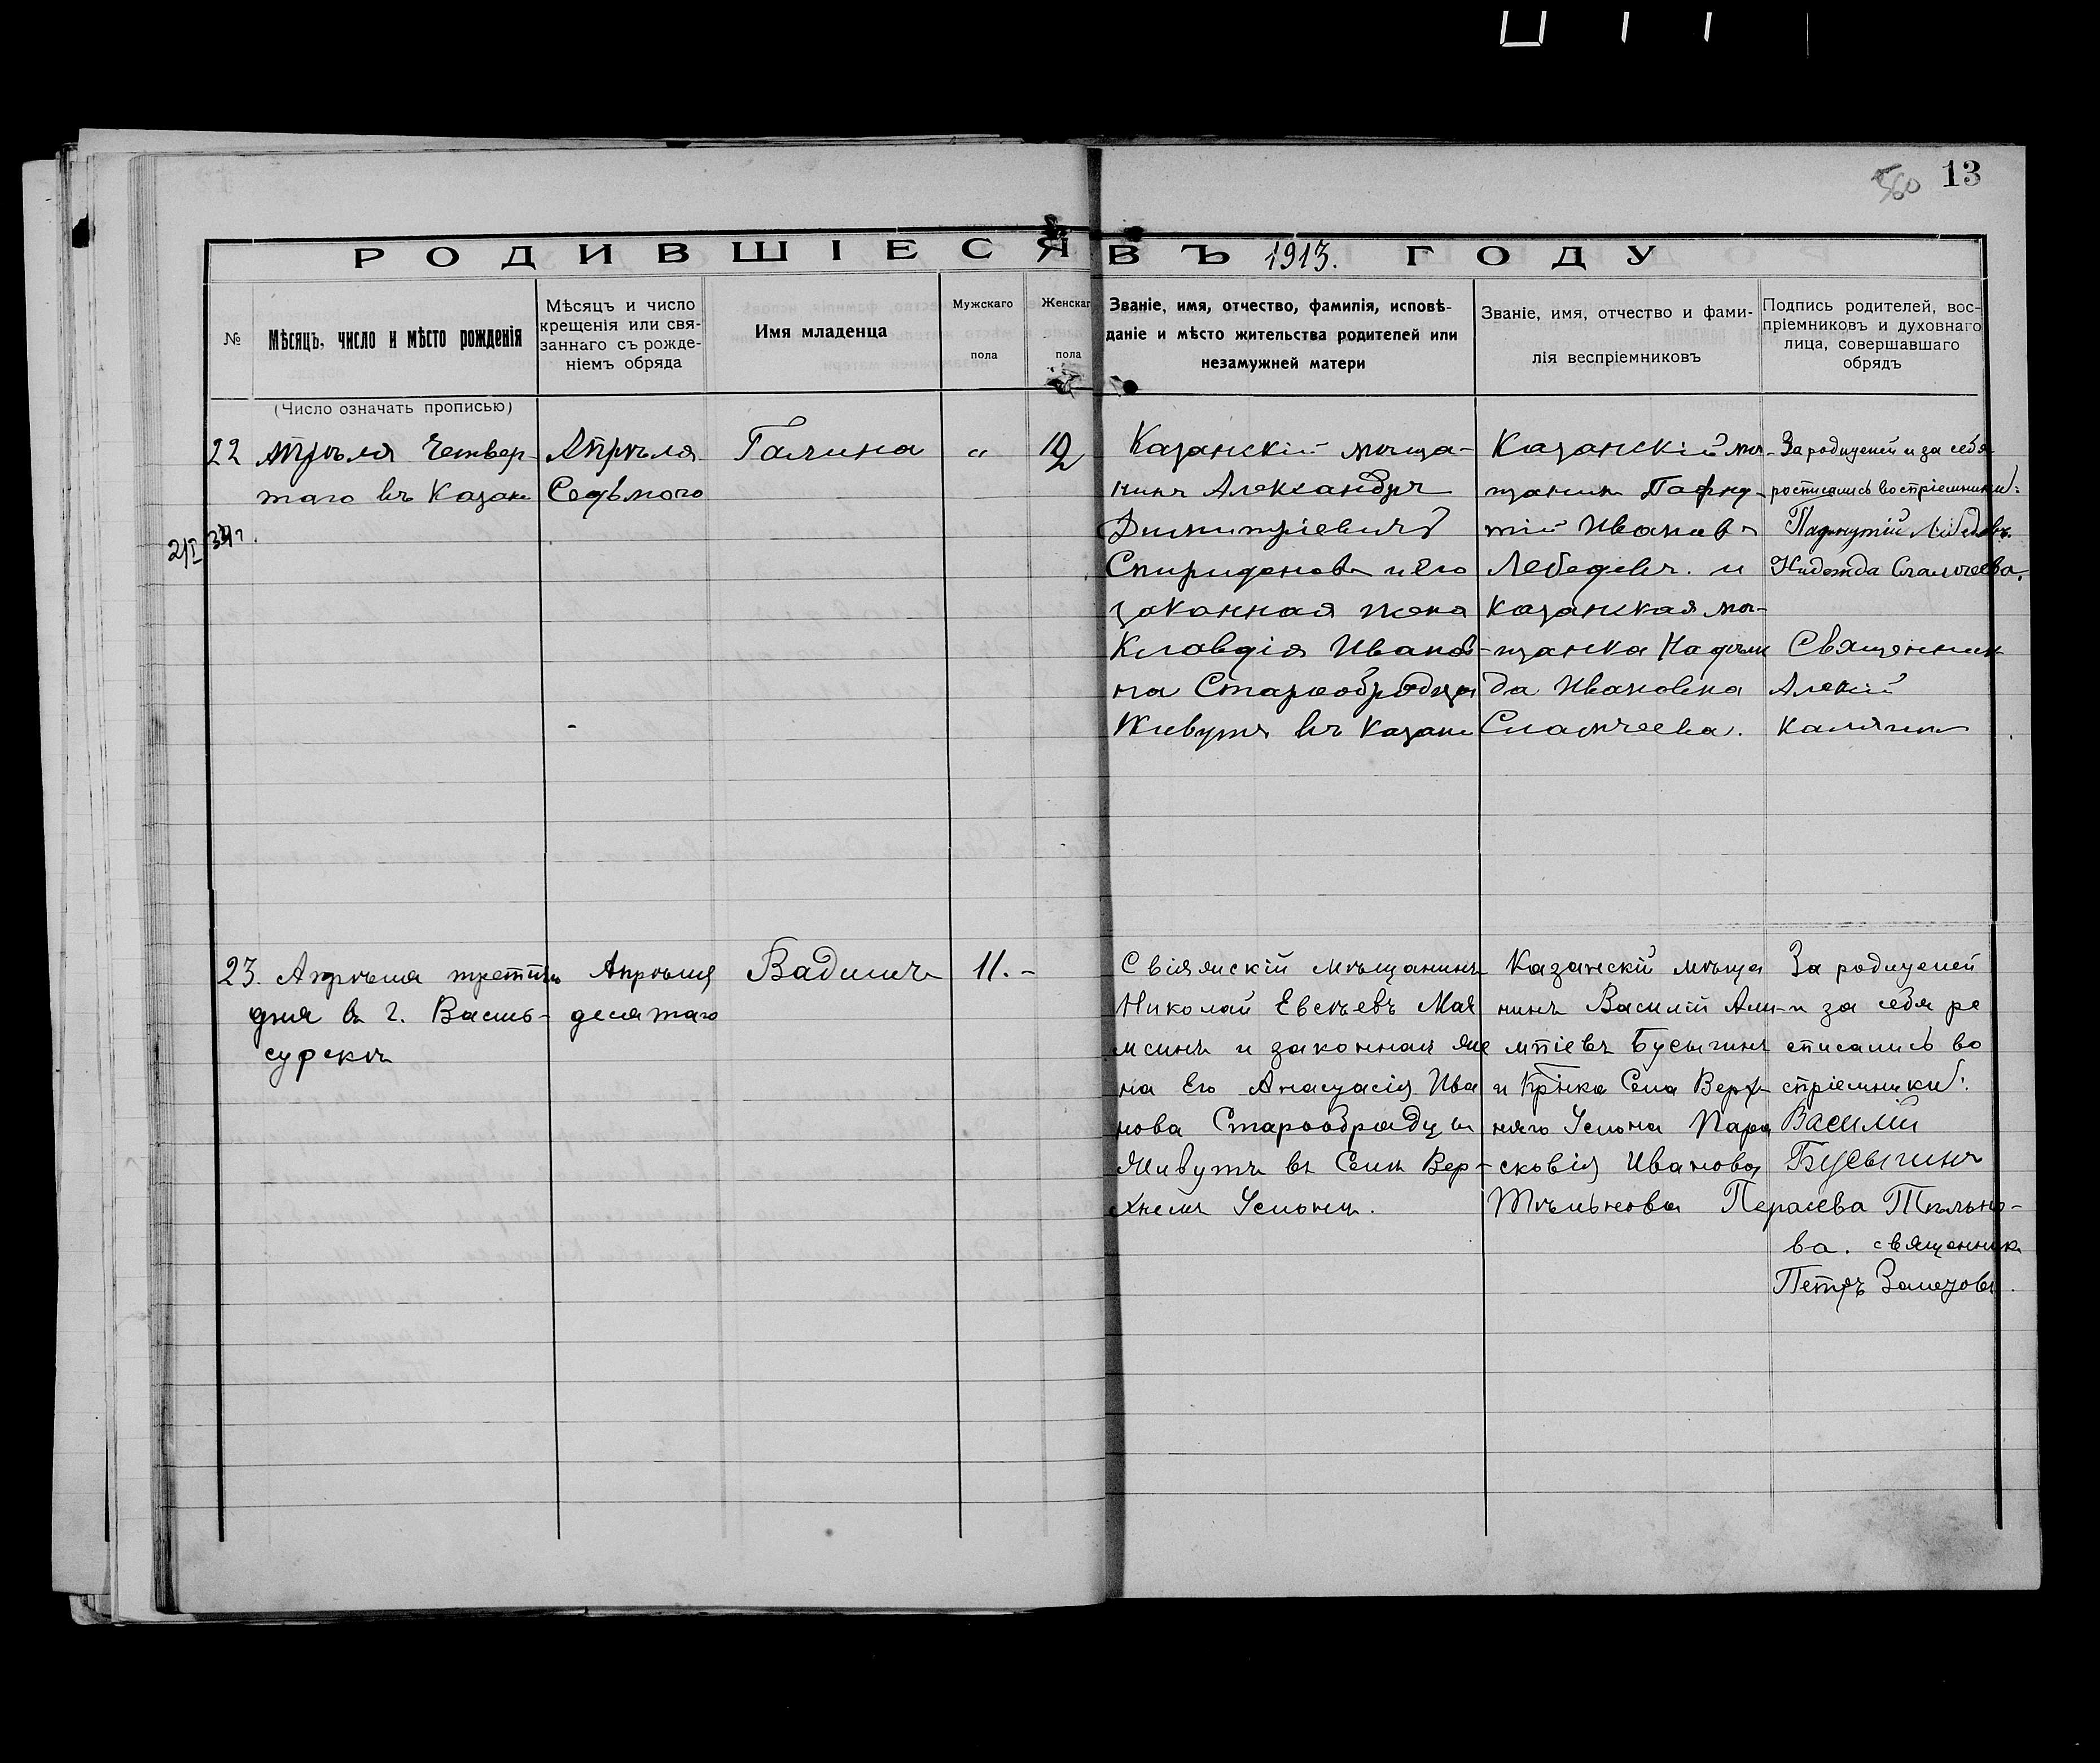 560 13
РОДИВШІЕСЯ ВЪ 1913. ГОДУ
№
Мѣсяцъ, число и мѣсто рожденія
Мѣсяцъ и число
крещенія или свя-
заннаго съ рожде-
ніемъ обряда
Имя младенца
Мужскаго
пола
Женскаг
пола
Званіе, имя, отчество, фамилія, исповѣ-
даніе и мѣсто жительства родителей или
незамужней матери
Званіе, имя, отчество и фами-
лія веспріемниковъ
Подпись родителей, вос-
пріемниковъ и духовнаго
лица, совершавшаго
обрядъ
(Число означать прописью)
22
Апрѣля Четвер-
таго въ Казани
Апрѣля
Седьмого
Галина
„
12
Казанскій мѣща-
нинъ Александръ
Димитріевичъ
Спиридоновъ и его
законная жена
Клавдія Иванов-
на Старообрядцы
Живутъ въ Казани
Казанскій мѣ-
щанинъ Пафну-
тій Ивановъ
Лебедевъ. и
Казанская мѣ-
щанка Надеж
да Ивановна
За родителей и за себя
росписались воспріемники:
Пафнутій Лебедевъ.
Надежда
Священник
Алексій
Калягинъ
23.
Апрѣля третьяго
дня въ г. Василь-
сурскѣ
Апрѣля
десятаго
Вадимъ
11. -
Свіяжскій мѣщанинъ
Николай Евсѣевъ Мая
и законная же
на Его Анастасія Ива
нова Старообрядцы
Живутъ въ Селѣ Вер-
хнемъ Услонѣ.
Казанскій мѣща
нинъ Василій Али-
мпіевъ Бусыгинъ
и Крѣнка Села Верх-
няго Услона Пара
сковія Иванова
Тѣльнова
За родителей
и за себя ро
списались во
спріемники:
Василій
Бусыгинъ
Тѣльно-
ва. священник
Петръ Залетовъ.